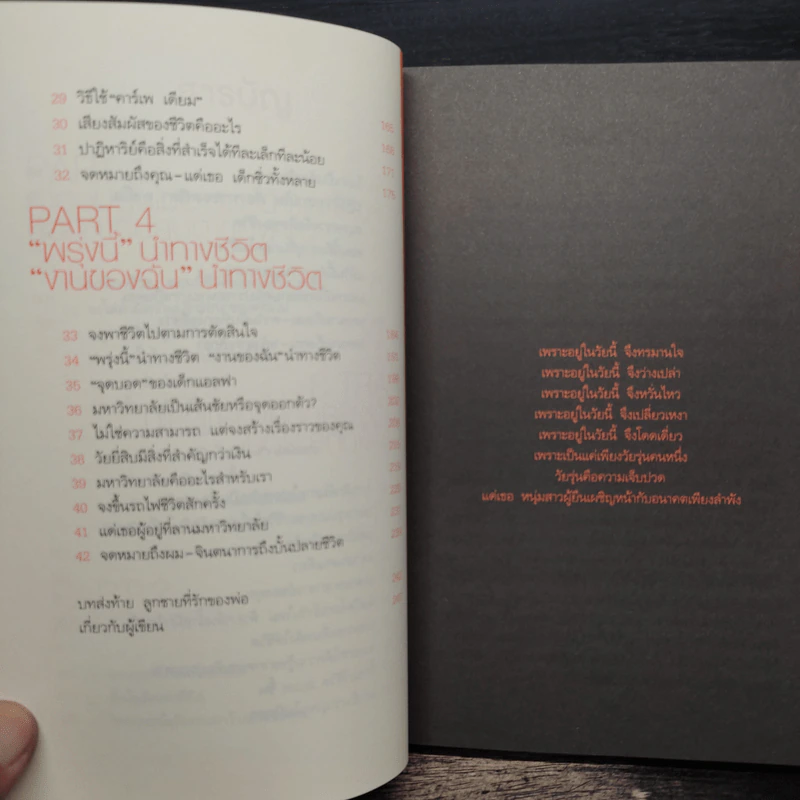 29 วิธีใช้“คาร์เพ เดียม”
30 เสียงสัมผัสของชีวิตคืออะไร 165
31 ปาฏิหาริย์คือสิ่งที่สำเร็จได้ทีละเล็กทีละน้อย 168
32 จดหมายถึงคุณ–แด่เธอ เด็กซิ่วทั้งหลาย 171
175
PART 4
“พรุ่งนี้” นำทางชีวิต
“งานของฉัน” นำทางชีวิต
33 จงพาชีวิตไปตามการตัดสินใจ 184
34 “พรุ่งนี้”นำทางชีวิต “งานของฉัน”นำทางชีวิต
35 “จุดบอด”ของเด็กแอลฟา
36 มหาวิทยาลัยเป็นเส้นชัยหรือจุดออกตัว?
37 ไม่ใช่ความสามารถ แต่จงสร้างเรื่องราวของคุณ
38 วัยยี่สิบมีสิ่งที่สำคัญกว่าเงิน
39 มหาวิทยาลัยคืออะไรสำหรับเรา
40 จงขึ้นรถไฟชีวิตสักครั้ง
41 แด่เธอผู้อยู่ที่ลานมหาวิทยาลัย
42 จดหมายถึงผม–จินตนาการถึงบั้นปลายชีวิต
บทส่งท้าย ลูกชายที่รักของพ่อ
เกี่ยวกับผู้เขียน
เพราะอยู่ในวัยนี้ จึงทรมานใจ
เพราะอยู่ในวัยนี้ จึงว่างเปล่า
เพราะอยู่ในวัยนี้ จึงหวั่นไหว
เพราะอยู่ในวัยนี้ จึงเปลี่ยวเหงา
เพราะอยู่ในวัยนี้ จึงโดดเดี่ยว
เพราะเป็นแค่เพียงวัยรุ่นคนหนึ่ง
วัยรุ่นคือความเจ็บปวด
แด่เธอ หนุ่มสาวผู้ยืนเผชิญหน้ากับอนาคตเพียงลำพัง